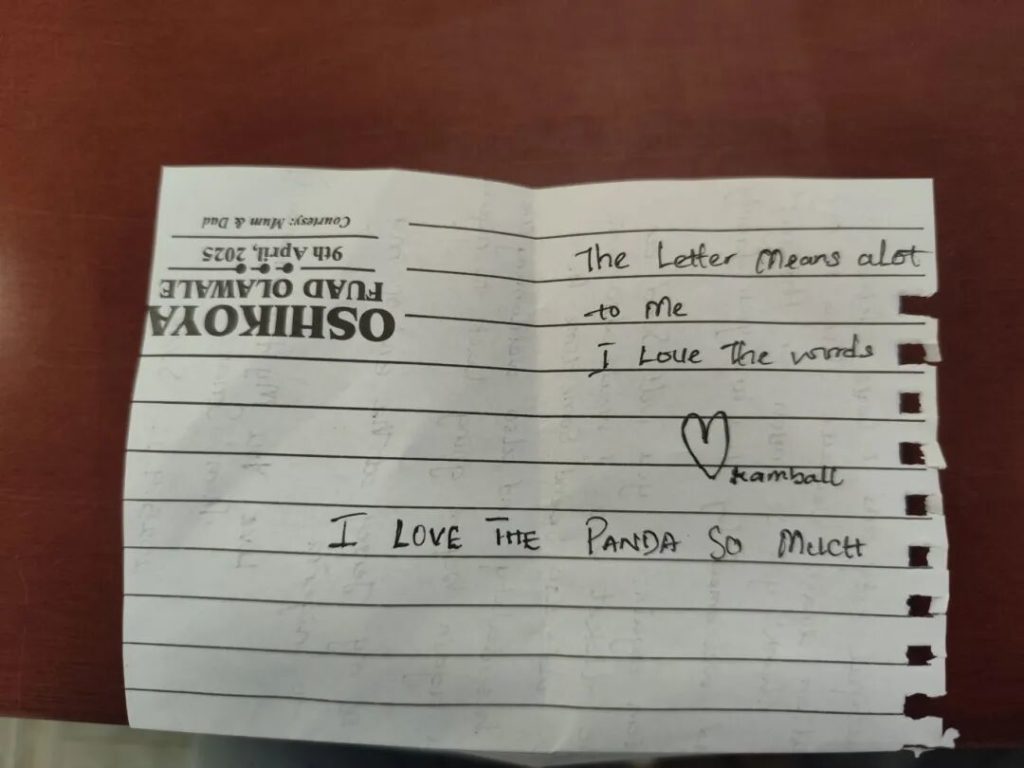 The Letter Means alot
to Me
I Love The words
kamball
I LOVE THE PANDA SO MUCH
OSHIKOYA
FUAD OLAWALE
9th April, 2025
Courtesy: Mum & Dad